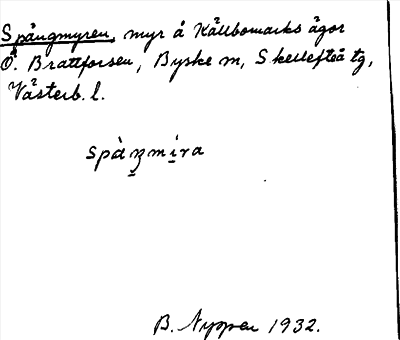 Spångmyren, myr å Källbomarks ägor
Ö. Brattforsen, Byske m, Skellefteå tg,
Västerb. l.
spàŋmira
B. Nyman 1932.